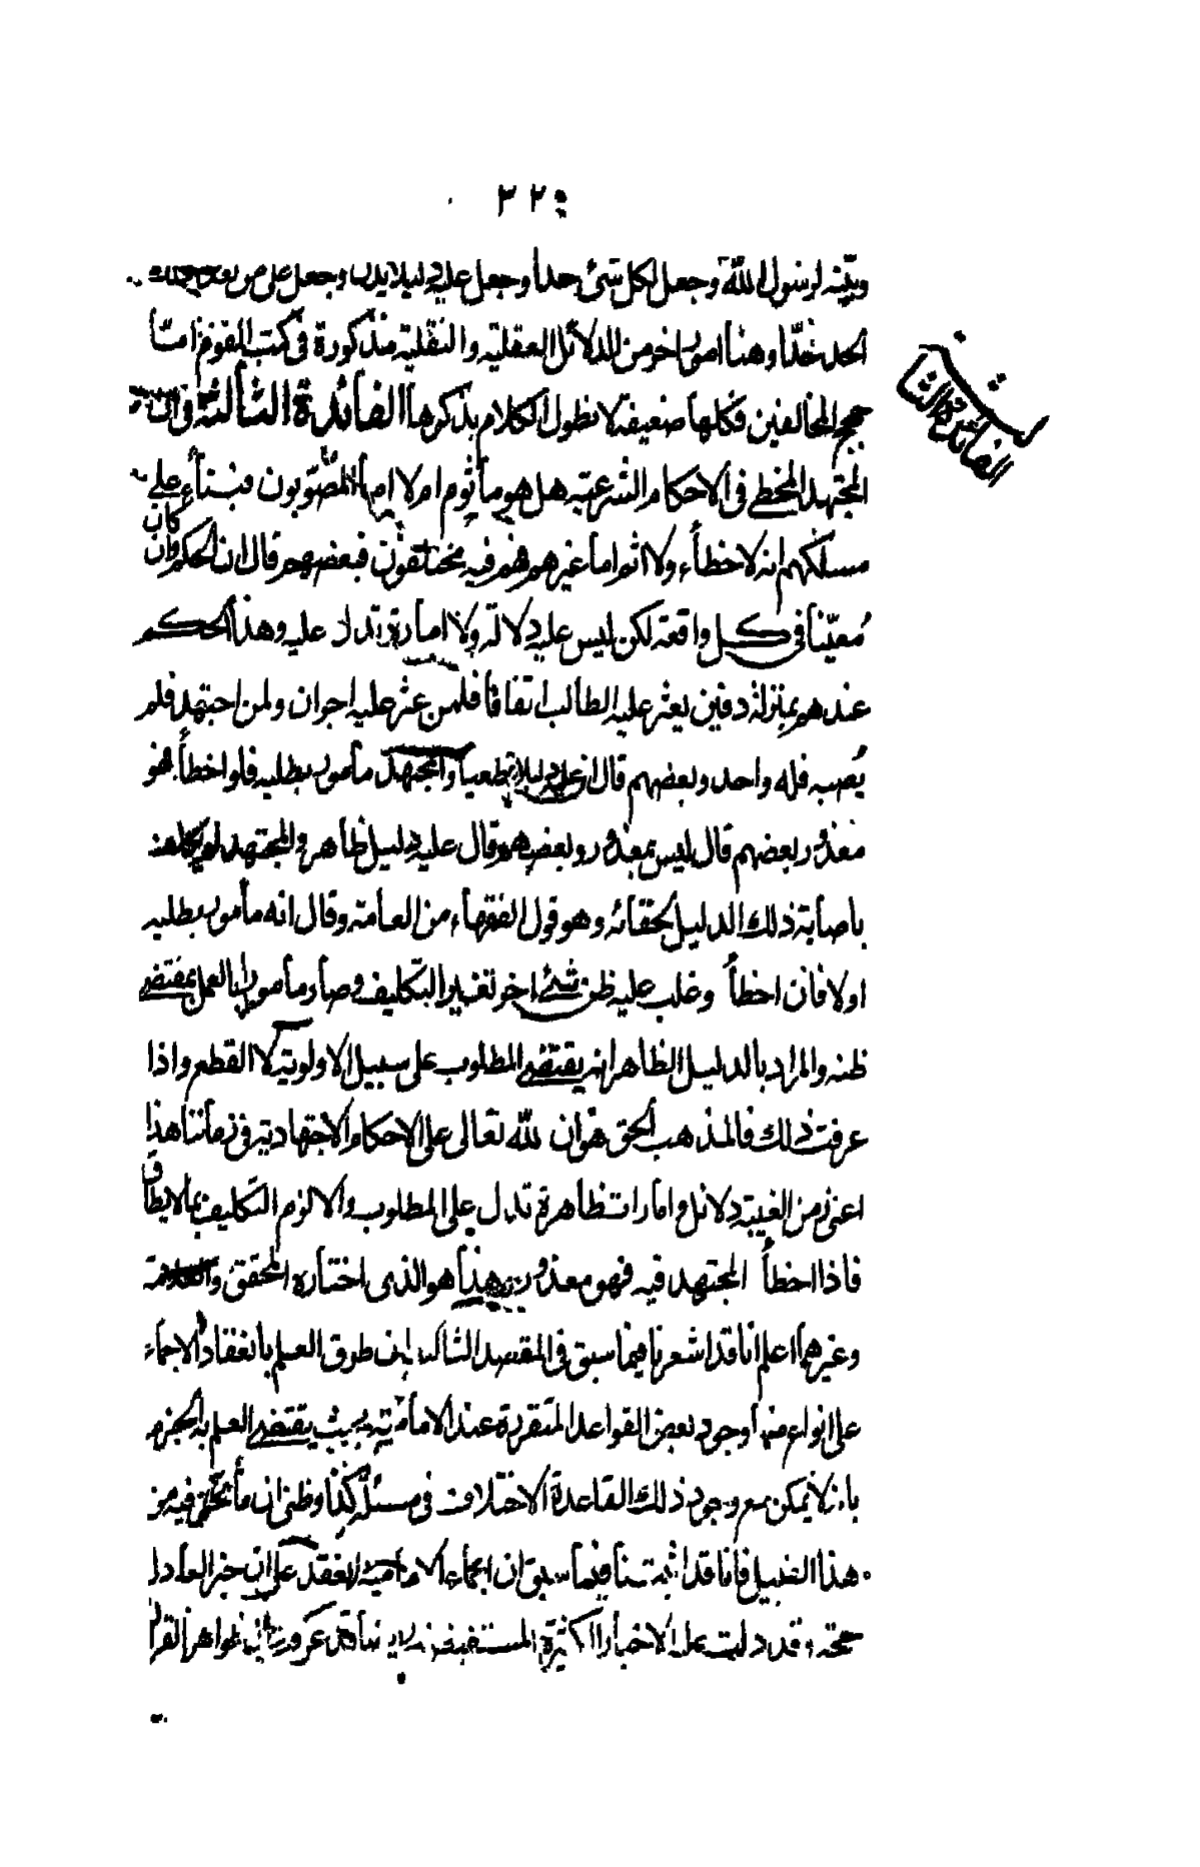 وبيّنه لرسول الله وجعل لكل شئ حدا وجعل عليه دليلا يدل وجعل على من
الحد حدّا وهنا اصول اخر من الدلائل العقلية والنقلية مذكورة في كتب القوم امّا
حجج المخالفين فكلها ضعيفة لا نطول الكلام بذكرها الفائدة الثالثة في ان
الفائدة الثالثة
المجتهد المخطي في الاحكام الشرعية هل هو مأثوم ام لا اما المصوّبون فبناء على
مسلكهم انه لا خطأ ولا اثم اما غيرهم فهم فيه مختلفون فبعضهم قال ان الحكم وان كان
معيّنا في كل واقعة لكن ليس عليه دلالة ولا امارة تدل عليه وهذا الحكم
عندهم بمنزلة دفين يعثر عليه الطالب اتفاقا فلمن عثر عليه اجران ولمن اجتهد فلم
يُصبه فله واحد وبعضهم قال ان عليه دليلا قطعيا والمجتهد مأمور بطلبه فلو اخطأ فهو
معذور وبعضهم قال ليس بمعذور وبعضهم قال عليه دليل ظاهر والمجتهد لم يكلف
باصابة ذلك الدليل لخفائه وهو قول الفقهاء من العامة وقال انه مأمور بطلبه
اولا فان اخطأ وغلب عليه ظن شئ اخر تغير التكليف وصار مأمورا بالعمل بمقتضى
ظنه والمراد بالدليل الظاهر انه يقتضى المطلوب على سبيل الاولوية لا القطع واذا
عرفت ذلك فالمذهب الحق هو ان لله تعالى على الاحكام الاجتهادية في زماننا هذا
اعنى زمن الغيبة دلائل وامارات ظاهرة تدل على المطلوب والا لزم التكليف بما لا يطاق
فاذا اخطأ المجتهد فيه فهو معذور وهذا هو الذى اختاره المحقق والعلامة
وغيرهما اعلم انا قد اشعرنا فيما سبق في المقصد الثالث ان طرق العلم بانعقاد الاجماع
على انواع منها وجود بعض القواعد المتقررة عند الامامية بحيث يقتضى العلم بالجزم
بانه لا يمكن مع وجود ذلك القاعدة الاختلاف في مسئلة كذا وظنى ان ما نحن فيه من
هذا القبيل فانا قد اثبتنا فيما سبق ان اجماع الامامية انعقد على ان خبر العادل
حجة وقد دلت عليه الاخبار الكثيرة المستفيضة ظواهر القران